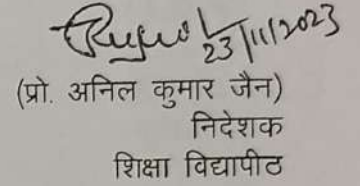 23/11/2023
(प्रो. अनिल कुमार जैन)
निदेशक
शिक्षा विद्यापीठ